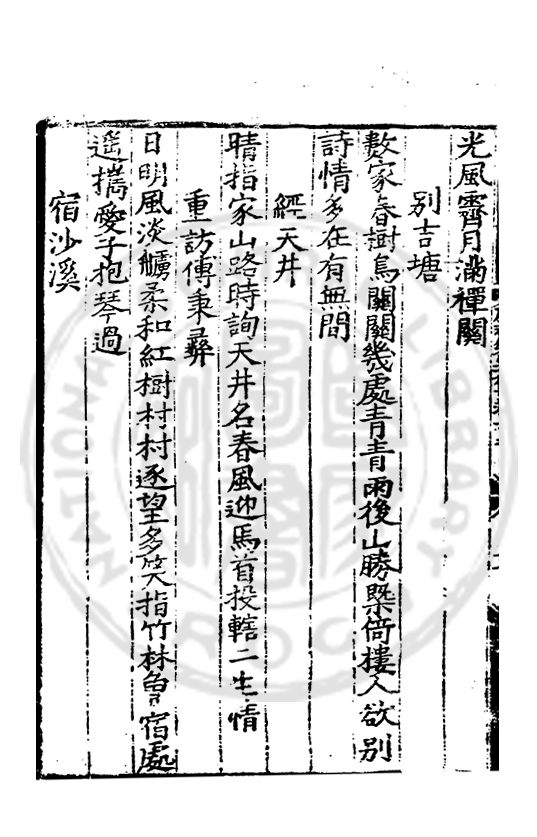 光風霽月滿禪關
別吉塘
數家春樹鳥關關幾處青青雨後山勝槩倚樓人欲別
詩情多在有無間
經天井
晴指家山路時詢天井名春風迎馬首投轄二生情
重訪傅秉彛
日明風淡艣柔和紅樹村村逐望多笑指竹林曾宿處
遥携愛子抱琴過
宿沙溪